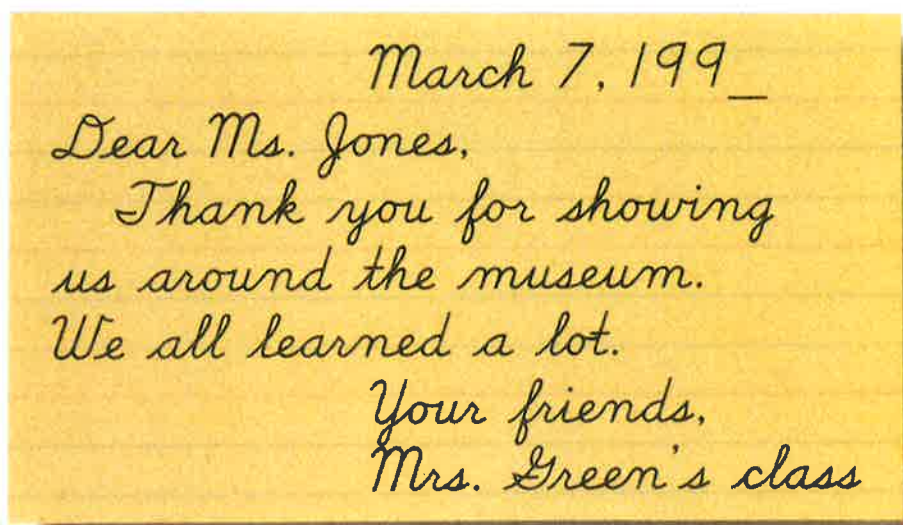 March 7, 199_
Dear Ms. Jones,
Thank you for showing
us around the museum.
We all learned a lot.
Your friends,
Mrs. Green's class